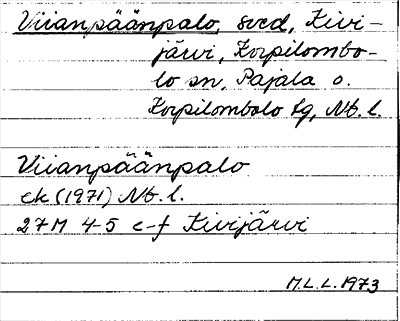 Viianpäänpalo, sved, Kivi-
järvi, Korpilombo-
lo sn, Pajala o.
Korpilombolo tg, Nb. l.
Viianpäänpalo
ek (1971) Nb. l.
27M 4-5 e-f Kivijärvi
M.L.L. 1973